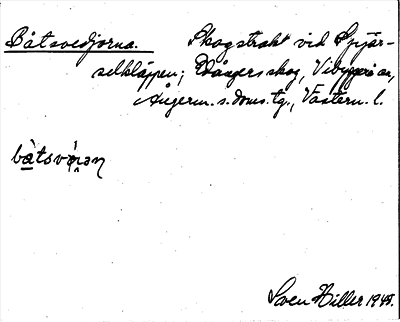 Båtsvedjorna. Skogstrakt vid Spjär-
selkläppen; Wångers skog, Vibyggerå sn,
Ångerm. s. doms. tg., Västern. l.
båtsvo̩ɹəɳ
Sven Hiller 1948.